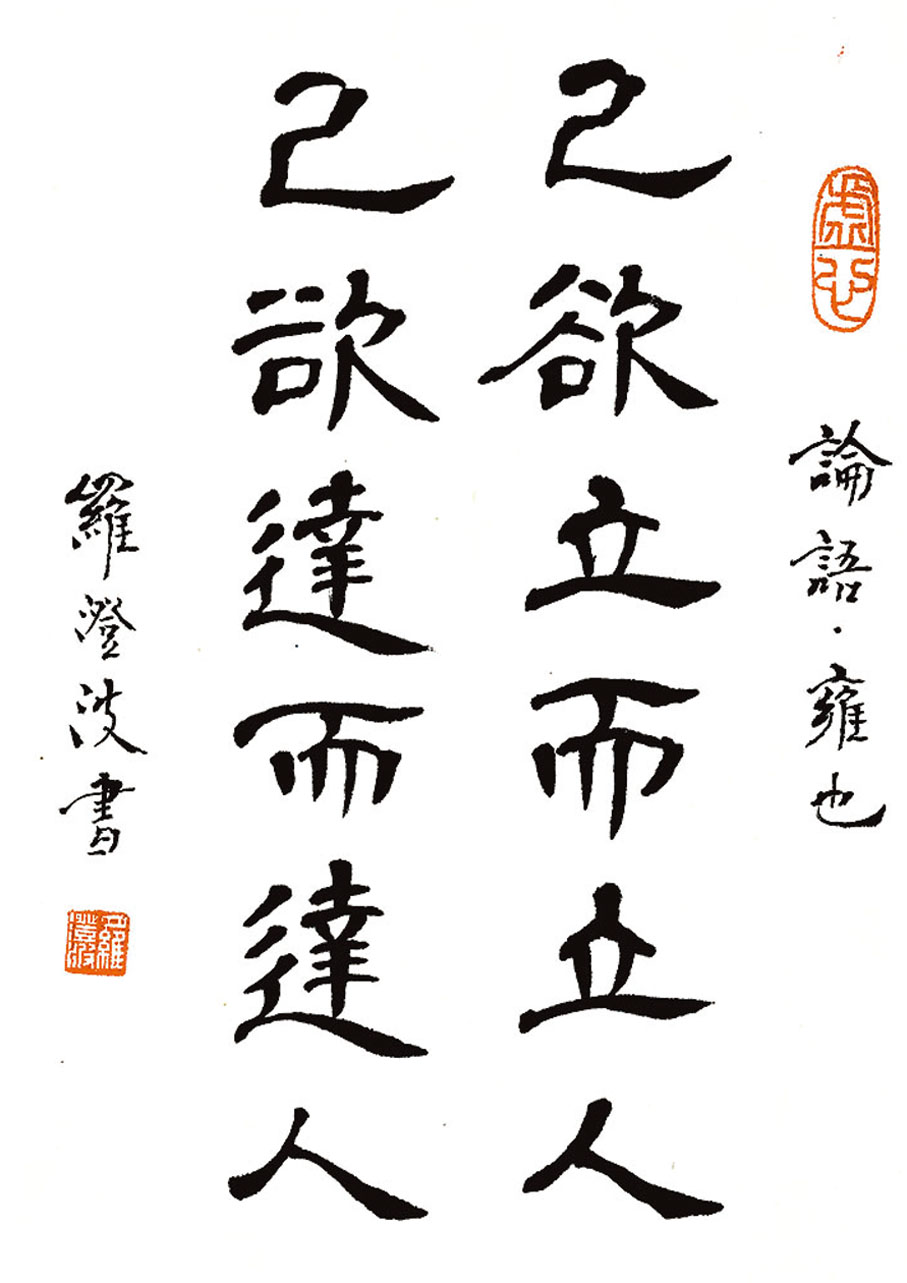 論語·雍也
己欲立而立人
己欲達而達人
羅澄波書
羅澄波